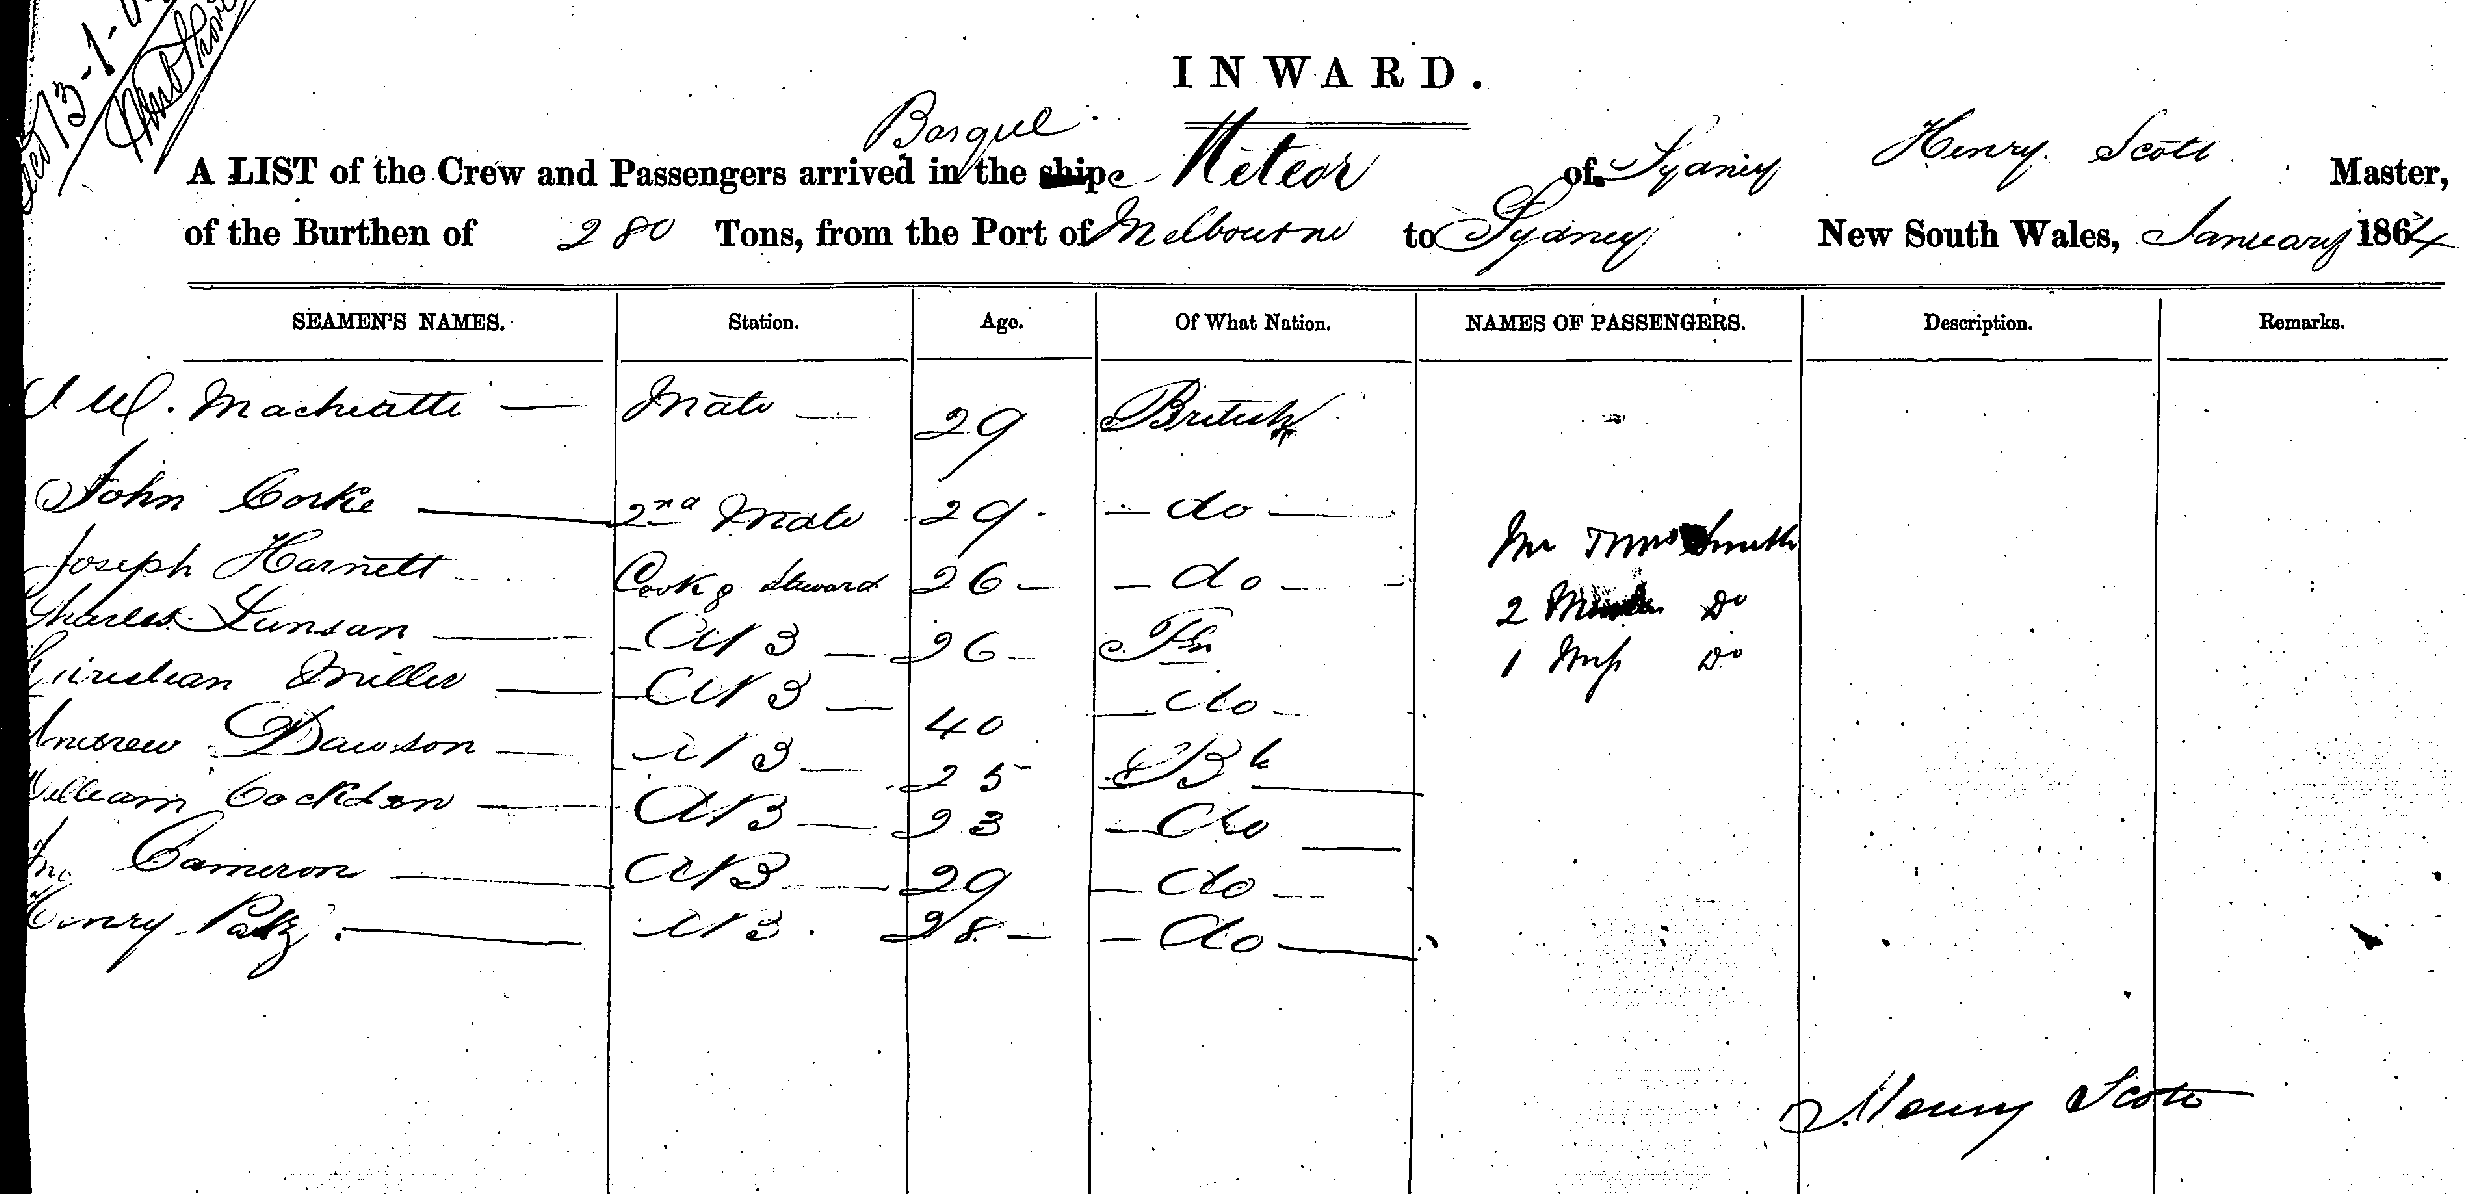 13-1-
INWARD.
Barque
A LIST of the Crew and Passengers arrived in the ship Meteor of Sydney Henry Scott Master,
of the Burthen of 280 Tons, from the Port of Melbourne to Sydney New South Wales, January 1864
SEAMEN'S NAMES. Station. Age. Of What Nation. NAMES OF PASSENGERS. Description. Remarks.
Machiattie — Mate — 29 British
John Corke — 2nd Mate 29 - do -
Mr Smith
Joseph Harnett Cook & Steward 26 - do -
2 Do
Charles — AB — 26 Fn
1 Miss Do
Christian Miller — AB — 40 do
Andrew Dawson — AB — 25 Bh
William — AB — 23 do
Jno Cameron — AB — 29 - do -
Henry — AB 28 - do -
Henry Scott